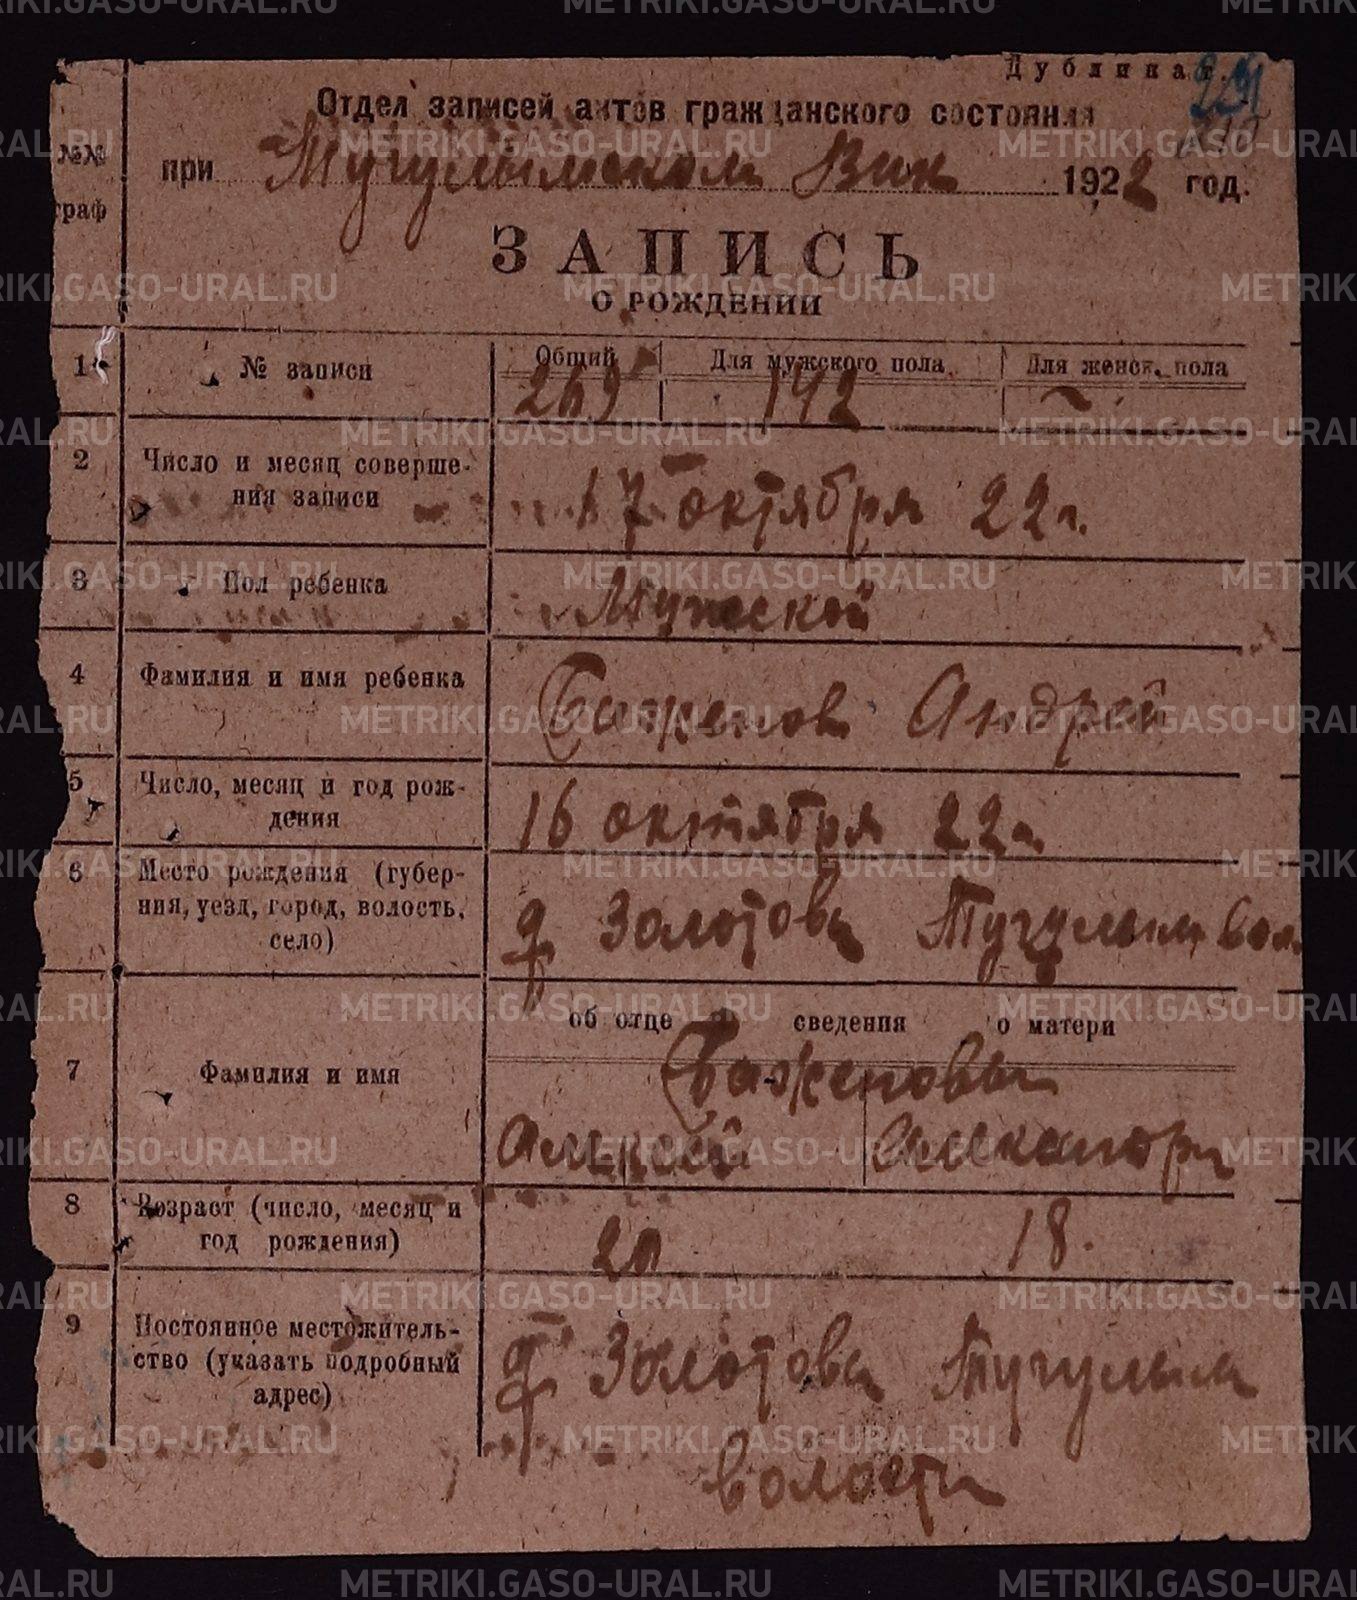 Дубликат.
Отдел записей актов гражданского состояния
№№ граф
при Тугулымском Вик 1922 год.
ЗАПИСЬ
О РОЖДЕНИИ
1 № записи Общий Для мужского пола Для женск. пола
269 142 —
2 Число и месяц соверше-
ния записи
17 октября 22 г.
3 Пол ребенка Мужской
4 Фамилия и имя ребенка Баженов Андрей
5 Число, месяц и год рож-
дения
16 октября 22 г.
6 Место рождения (губер-
ния, уезд, город, волость,
село)
д Золотова Тугулым вол.
об отце сведения о матери
7 Фамилия и имя
Баженовы
Алексей Александра
8 Возраст (число, месяц и
год рождения)
20 18.
9 Постоянное местожитель-
ство (указать подробный
адрес)
д Золотова Тугулым
волости
METRIKI.GASO-URAL.RU